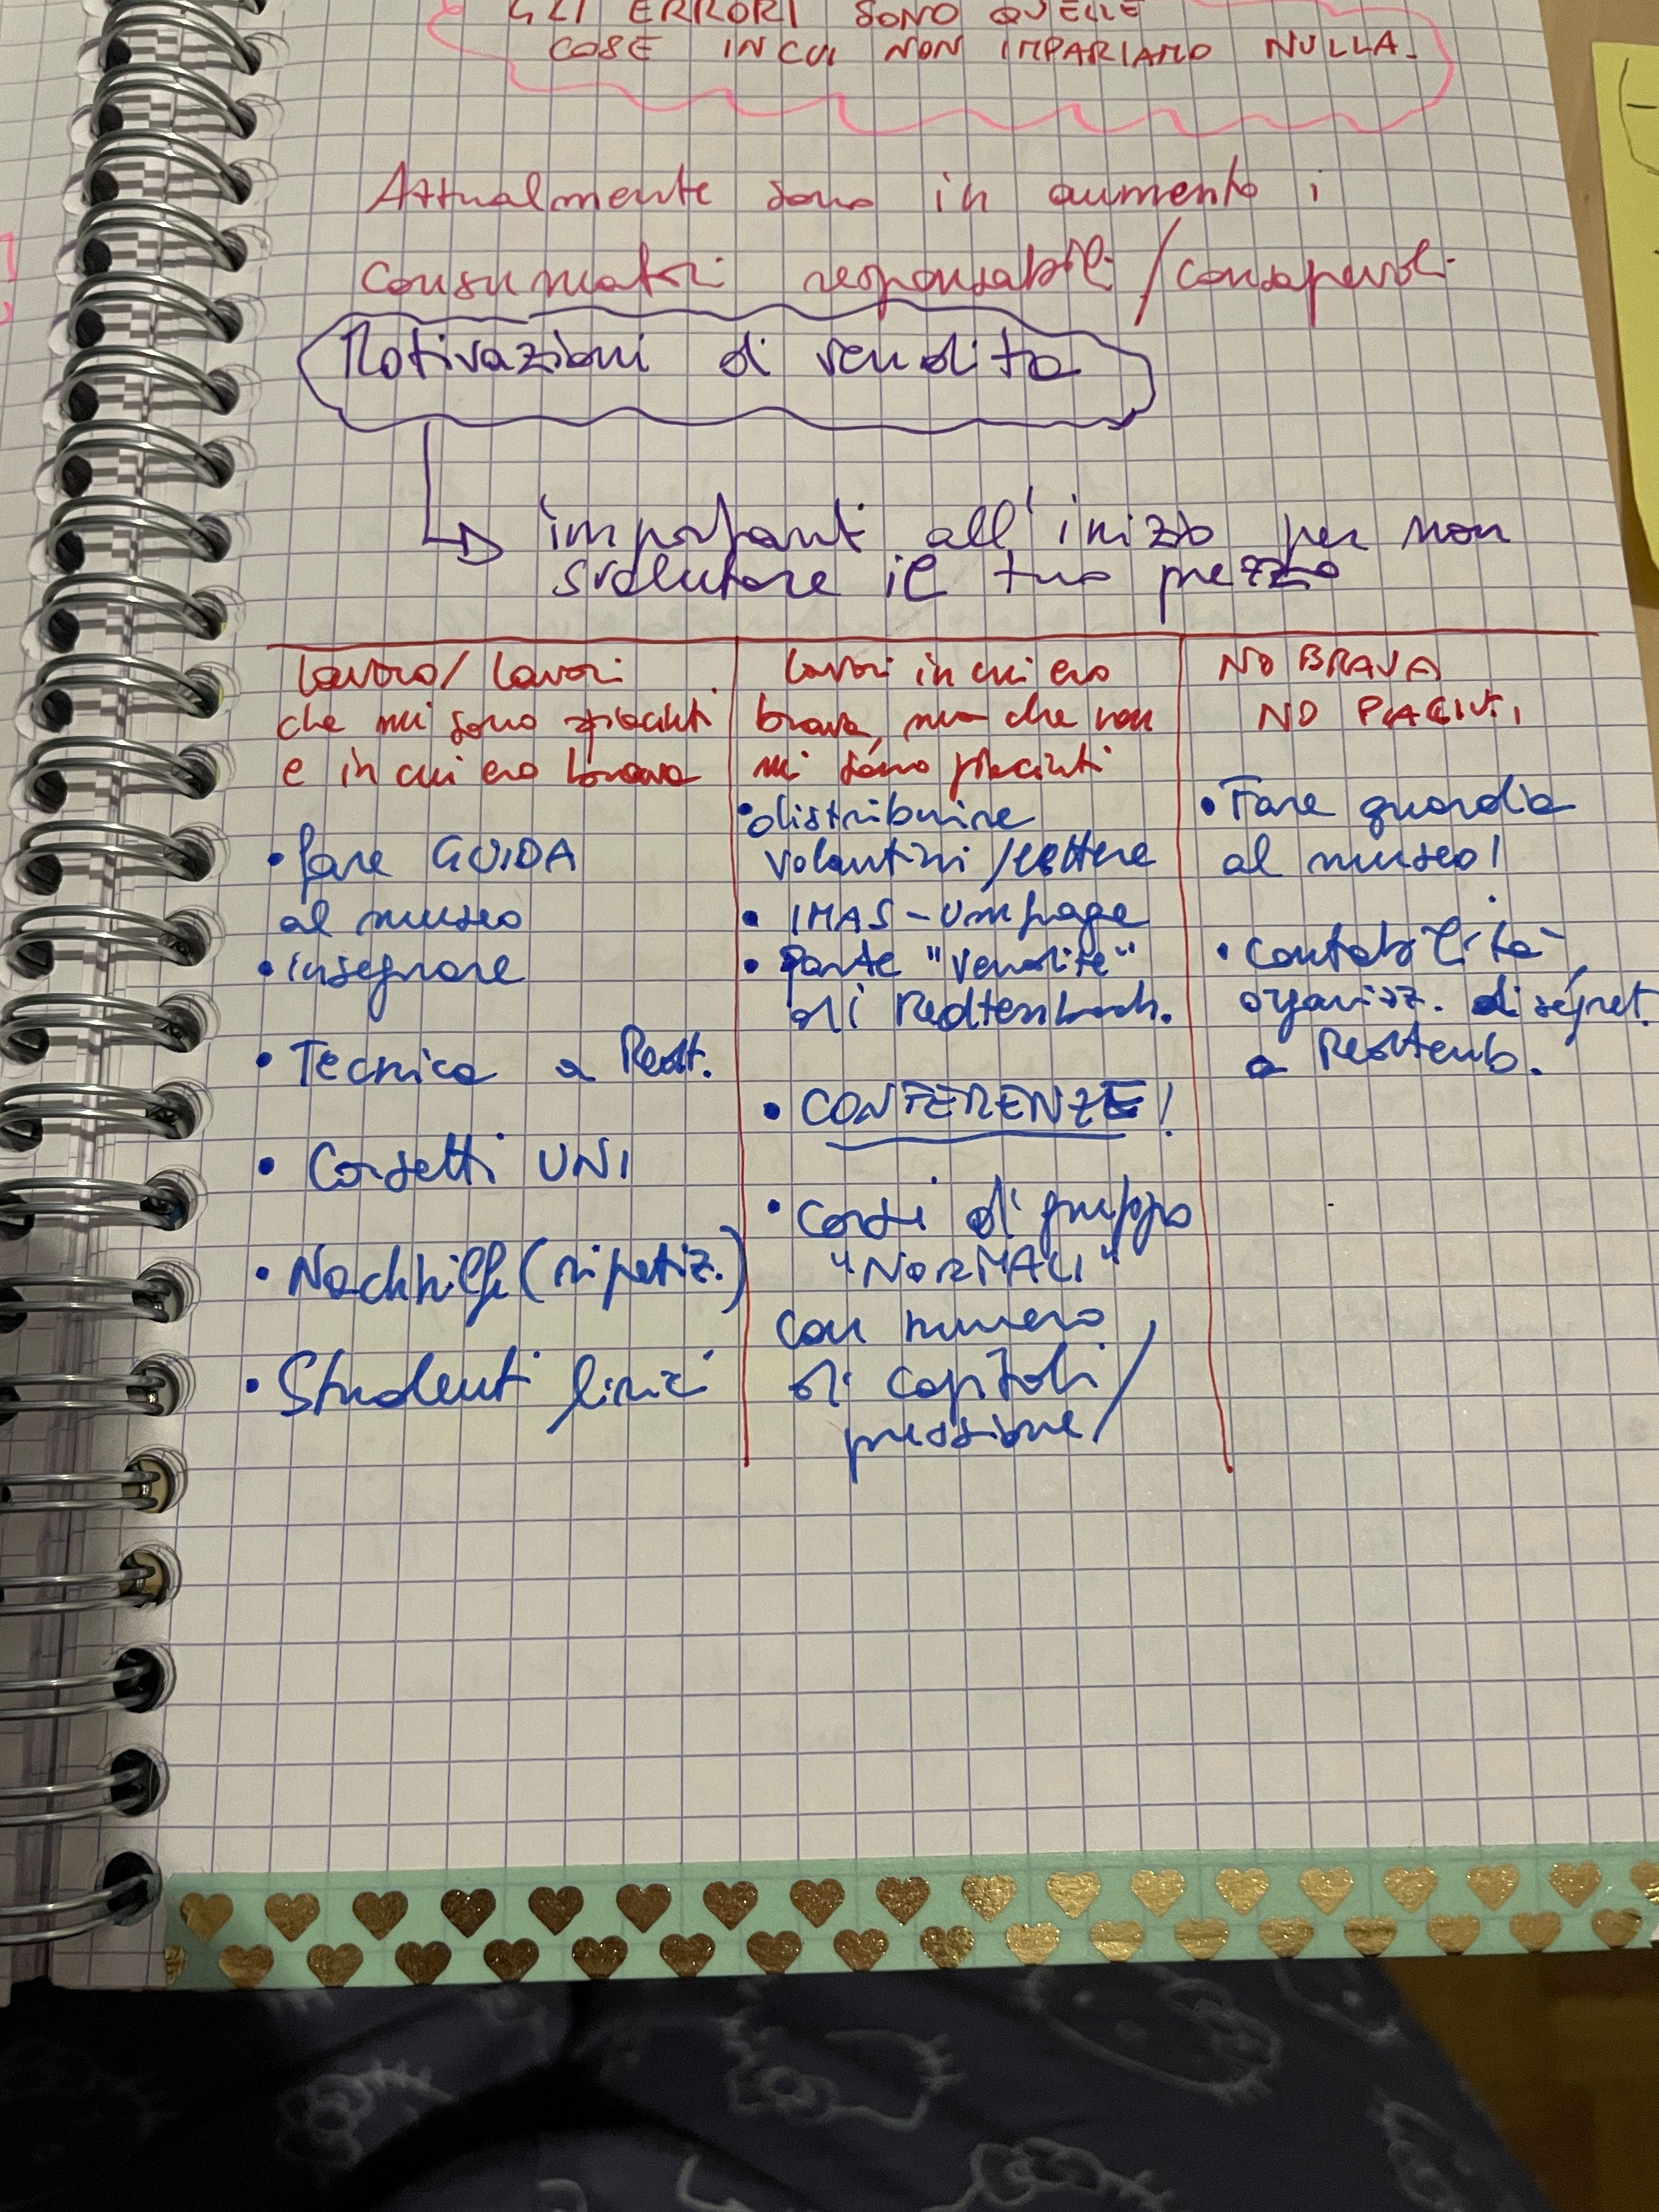 GLI ERRORI SONO QUELLE
COSE IN CUI NON IMPARIAMO NULLA.
Attualmente sono in aumento i
consumatori responsabili/consapevoli
Motivazioni di vendita
importanti all'inizio per non
svalutare il tuo prezzo
lavoro/lavori
che mi sono piaciuti
e in cui ero brava
• fare GUIDA
al museo
• insegnare
• Tecnica a Redt.
• Corsetti UNI
• Nachhilfe (ripetiz.)
• Studenti lirici
lavori in cui ero
brava, ma che non
mi sono piaciuti
• distribuire
volantini/lettere
• IMAS-Umfrage
• Parte "vendite"
di Redtenbach.
• CONFERENZE!
• Corsi di gruppo
"NORMALI"
con numero
di capitoli/
pressione/
NO BRAVA
NO PIACIUTI
• Fare guardia
al museo!
• contabilità,
organizz. di segret.
a Redtenb.